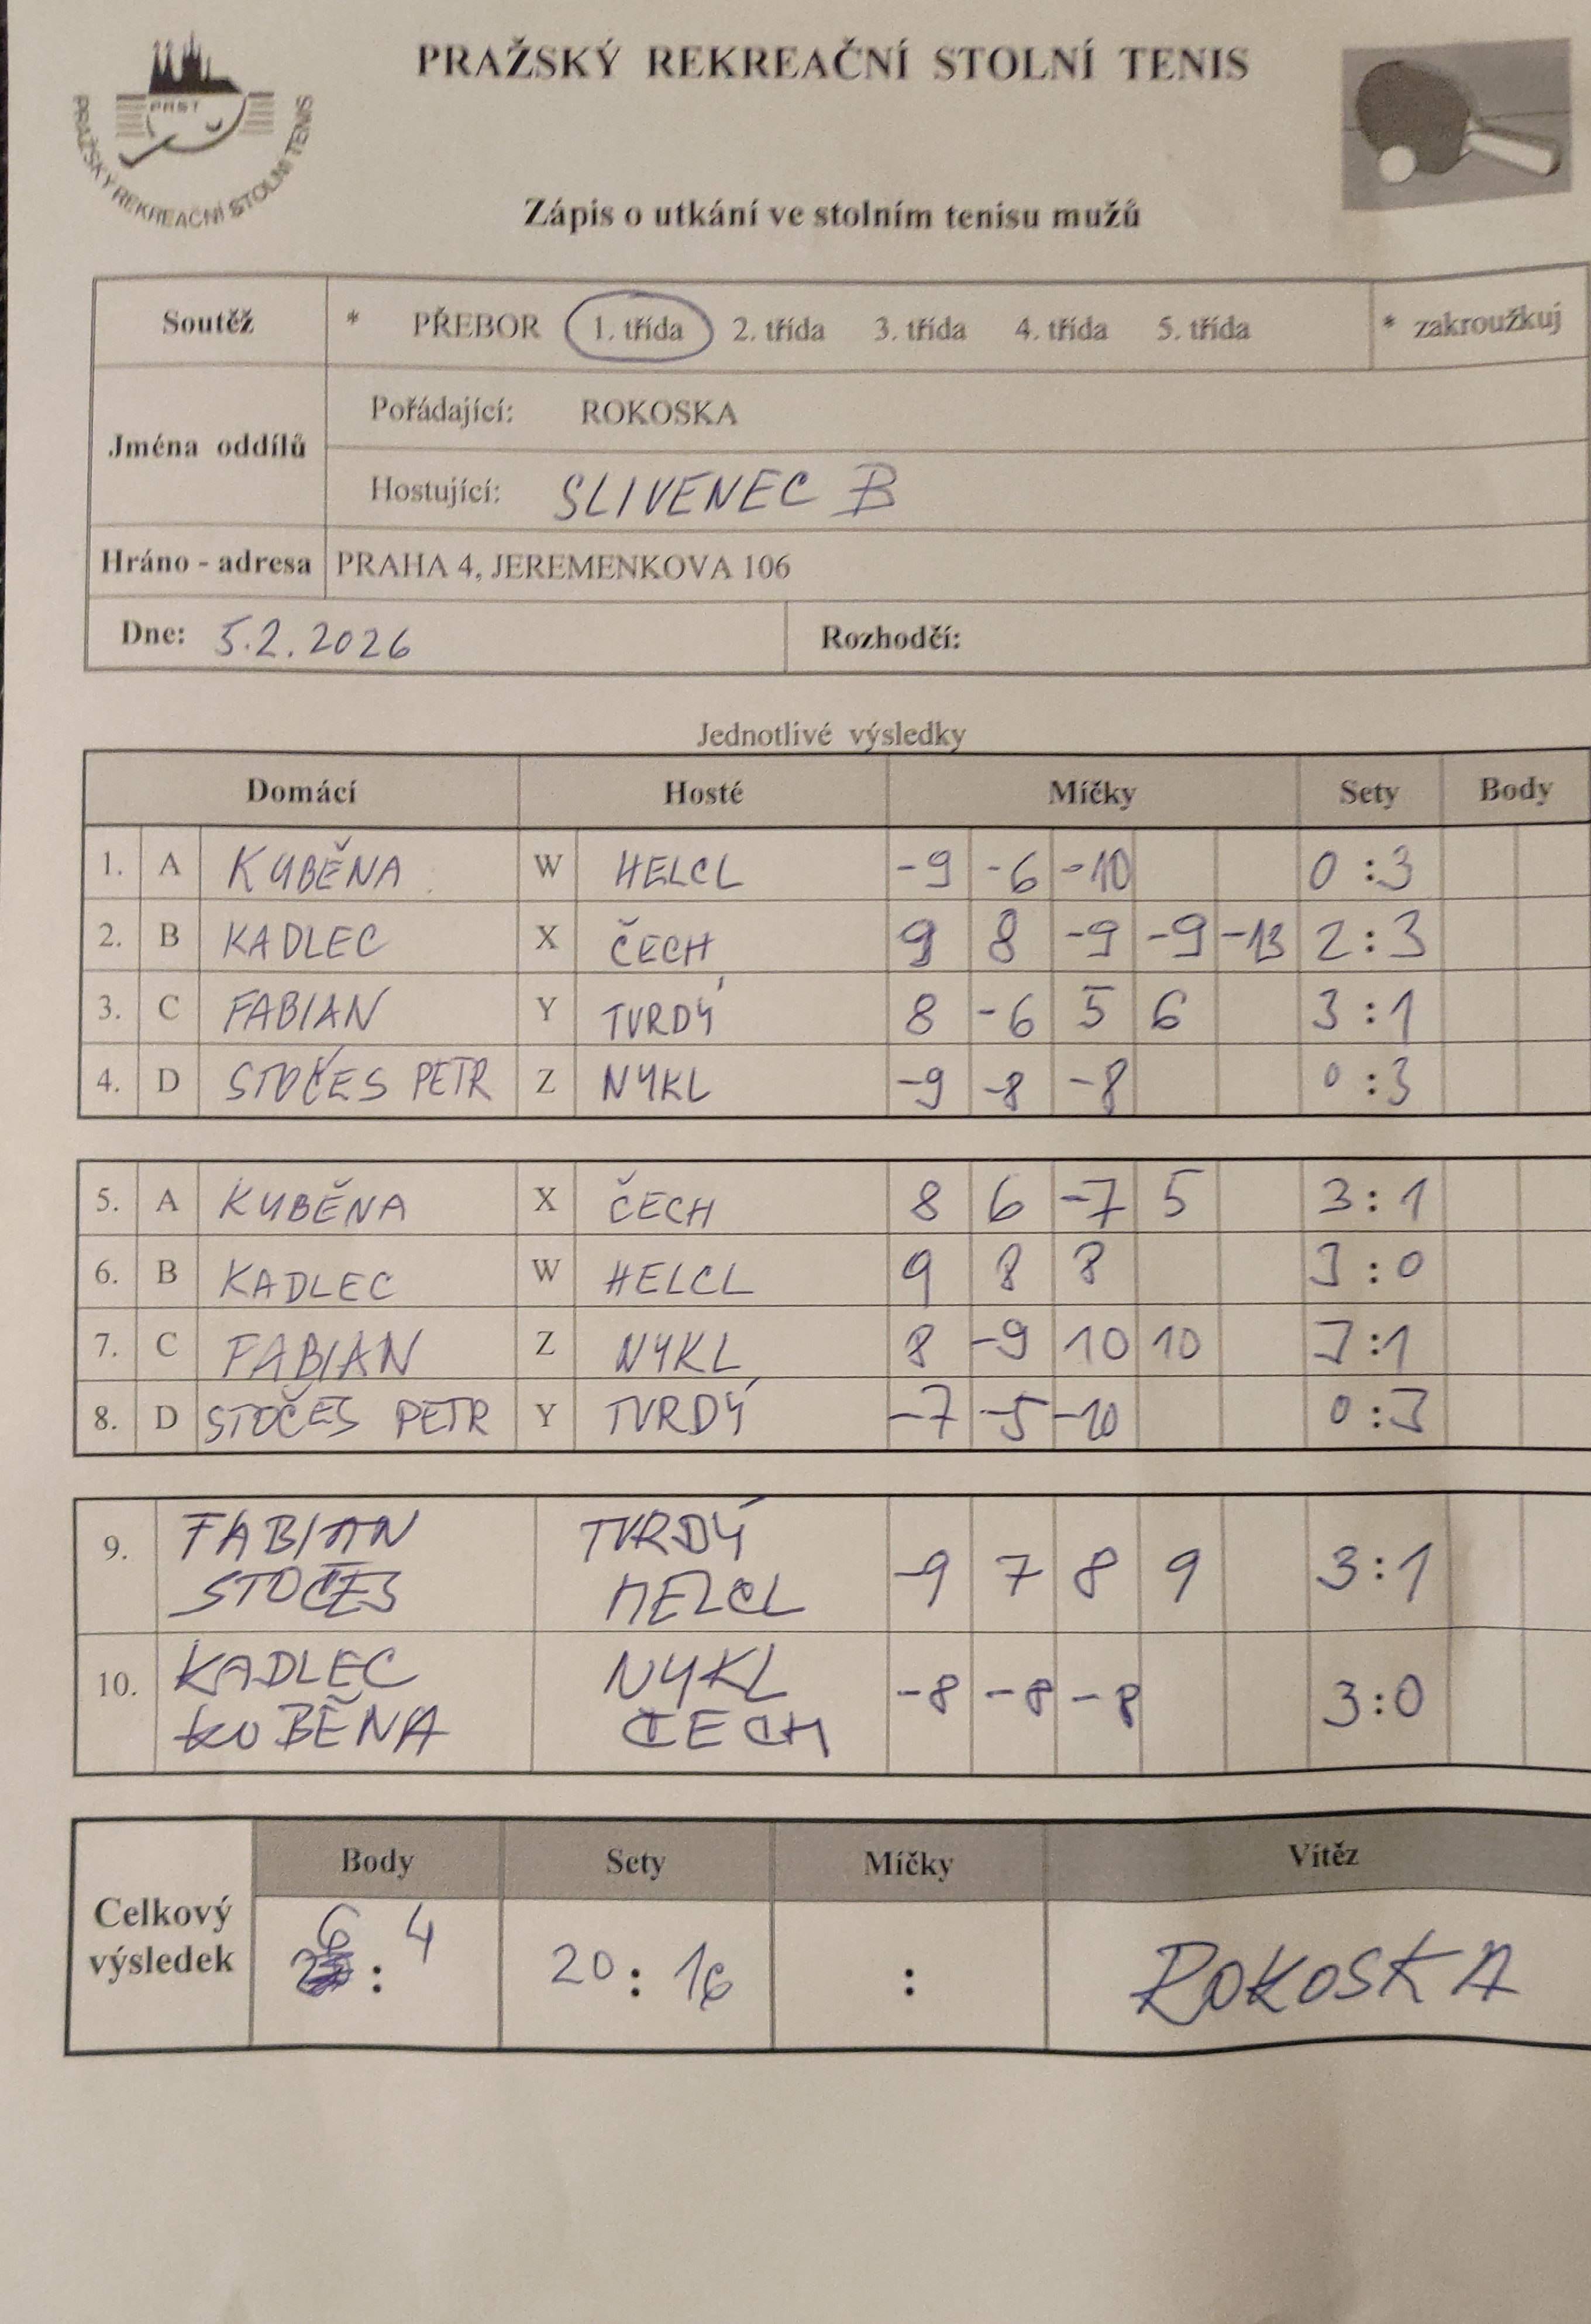 PRAŽSKÝ REKREAČNÍ STOLNÍ TENIS
PRST
PRAŽSKÝ REKREAČNÍ STOLNÍ TENIS
Zápis o utkání ve stolním tenisu mužů
Soutěž * PŘEBOR 1. třída 2. třída 3. třída 4. třída 5. třída * zakroužkuj
Jména oddílů
Pořádající: ROKOSKA
Hostující: SLIVENEC B
Hráno - adresa PRAHA 4, JEREMENKOVA 106
Dne: 5.2.2026 Rozhodčí:
Jednotlivé výsledky
Domácí Hosté Míčky Sety Body
1. A KUBĚNA W HELCL -9 -6 -10 0:3
2. B KADLEC X ČECH 9 8 -9 -9 -13 2:3
3. C FABIAN Y TVRDÝ 8 -6 5 6 3:1
4. D STOČES PETR Z NYKL -9 -8 -8 0:3
5. A KUBĚNA X ČECH 8 6 -7 5 3:1
6. B KADLEC W HELCL 9 8 8 3:0
7. C FABIAN Z NYKL 8 -9 10 10 3:1
8. D STOČES PETR Y TVRDÝ -7 -5 -10 0:3
9. FABIAN TVRDÝ -9 7 8 9 3:1
STOČES HELCL
10. KADLEC NYKL -8 -8 -8 3:0
KUBĚNA ČECH
Body Sety Míčky Vítěz
Celkový výsledek 6 : 4 20 : 16 : ROKOSKA